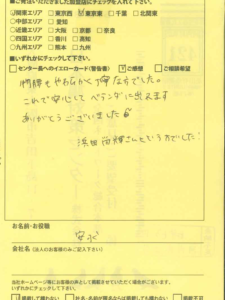 ■ご発送いただきました加盟店にチェックを入れて下さい。
□関東エリア □東京西 ☑東京東 □千葉 □北関東
□中部エリア □愛知
□近畿エリア □大阪 □京都 □奈良
□四国エリア □香川 □高知
□九州エリア □熊本 □九州
■いずれかにチェックして下さい。
□センター長へのイエローカード(警告書) ☑ご感想 □ご相談希望
やわらかく丁寧な方でした。
これで安心してベランダに出れます
ありがとうございました
浜田 さんという方でした!
お名前・お役職
安
会社名 (法人のお客様のみご記入下さい)
当社ホームページ等にお客様の声として掲載させていただく場合がございます。
いずれかにチェックして下さい。
掲載して構わない □社名・名前が載るならば掲載しても構わない □掲載不可